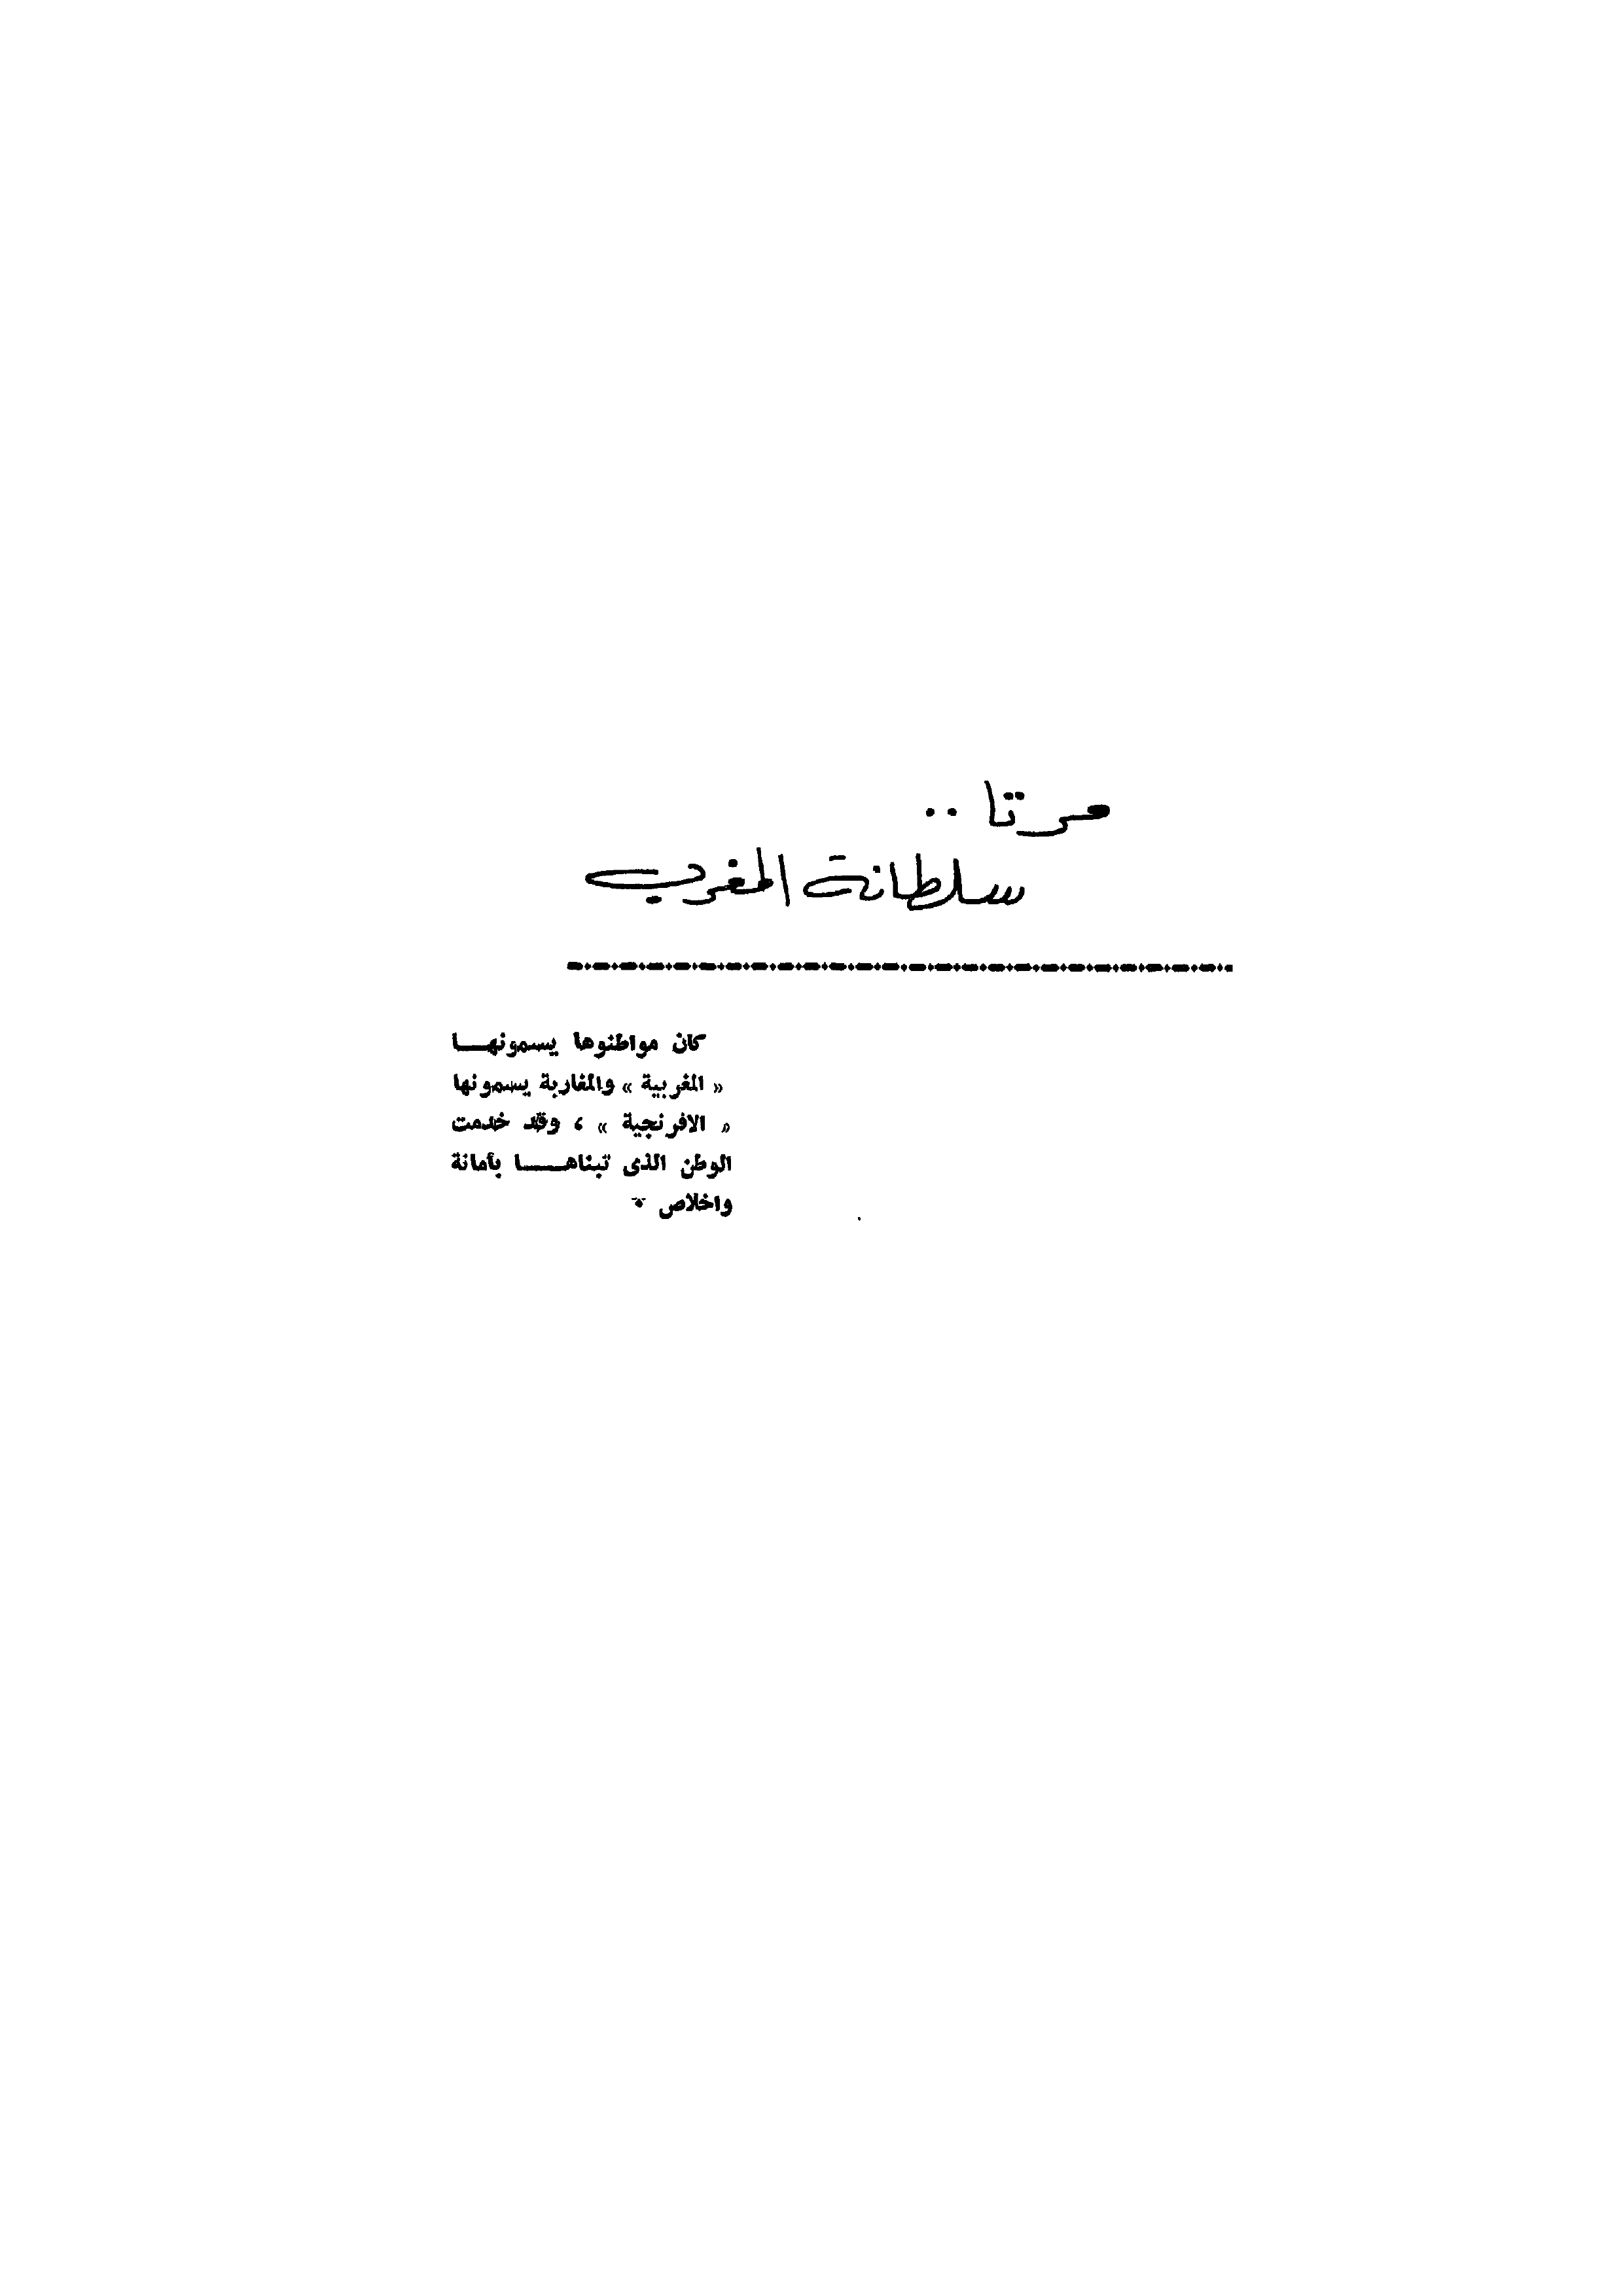 مرتا ..
سلطانة المغرب
كان مواطنوها يسمونها
« المغربية » والمغاربة يسمونها
« الافرنجية » ، وقد خدمت
الوطن الذى تبناها بأمانة
واخلاص .